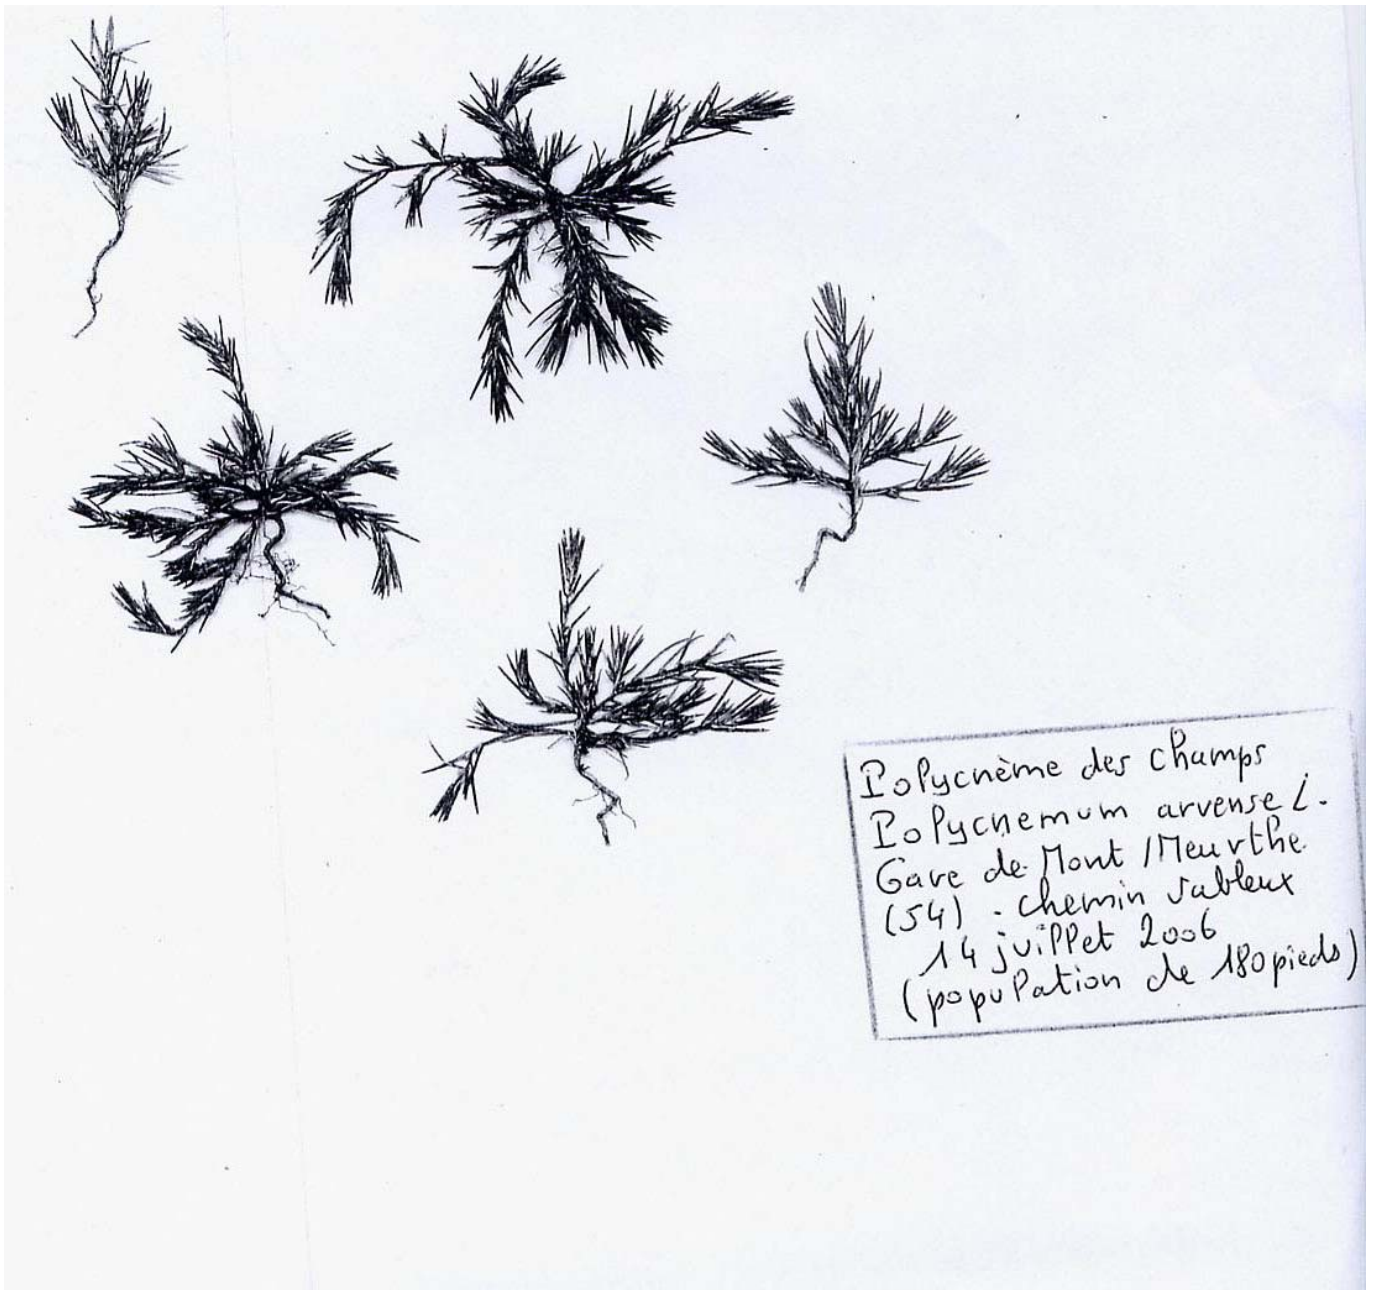 Polycnème des champs
Polycnemum arvense L.
Gare de Mont / Meurthe
(54) . chemin sableux
14 juillet 2006
(population de 180 pieds)